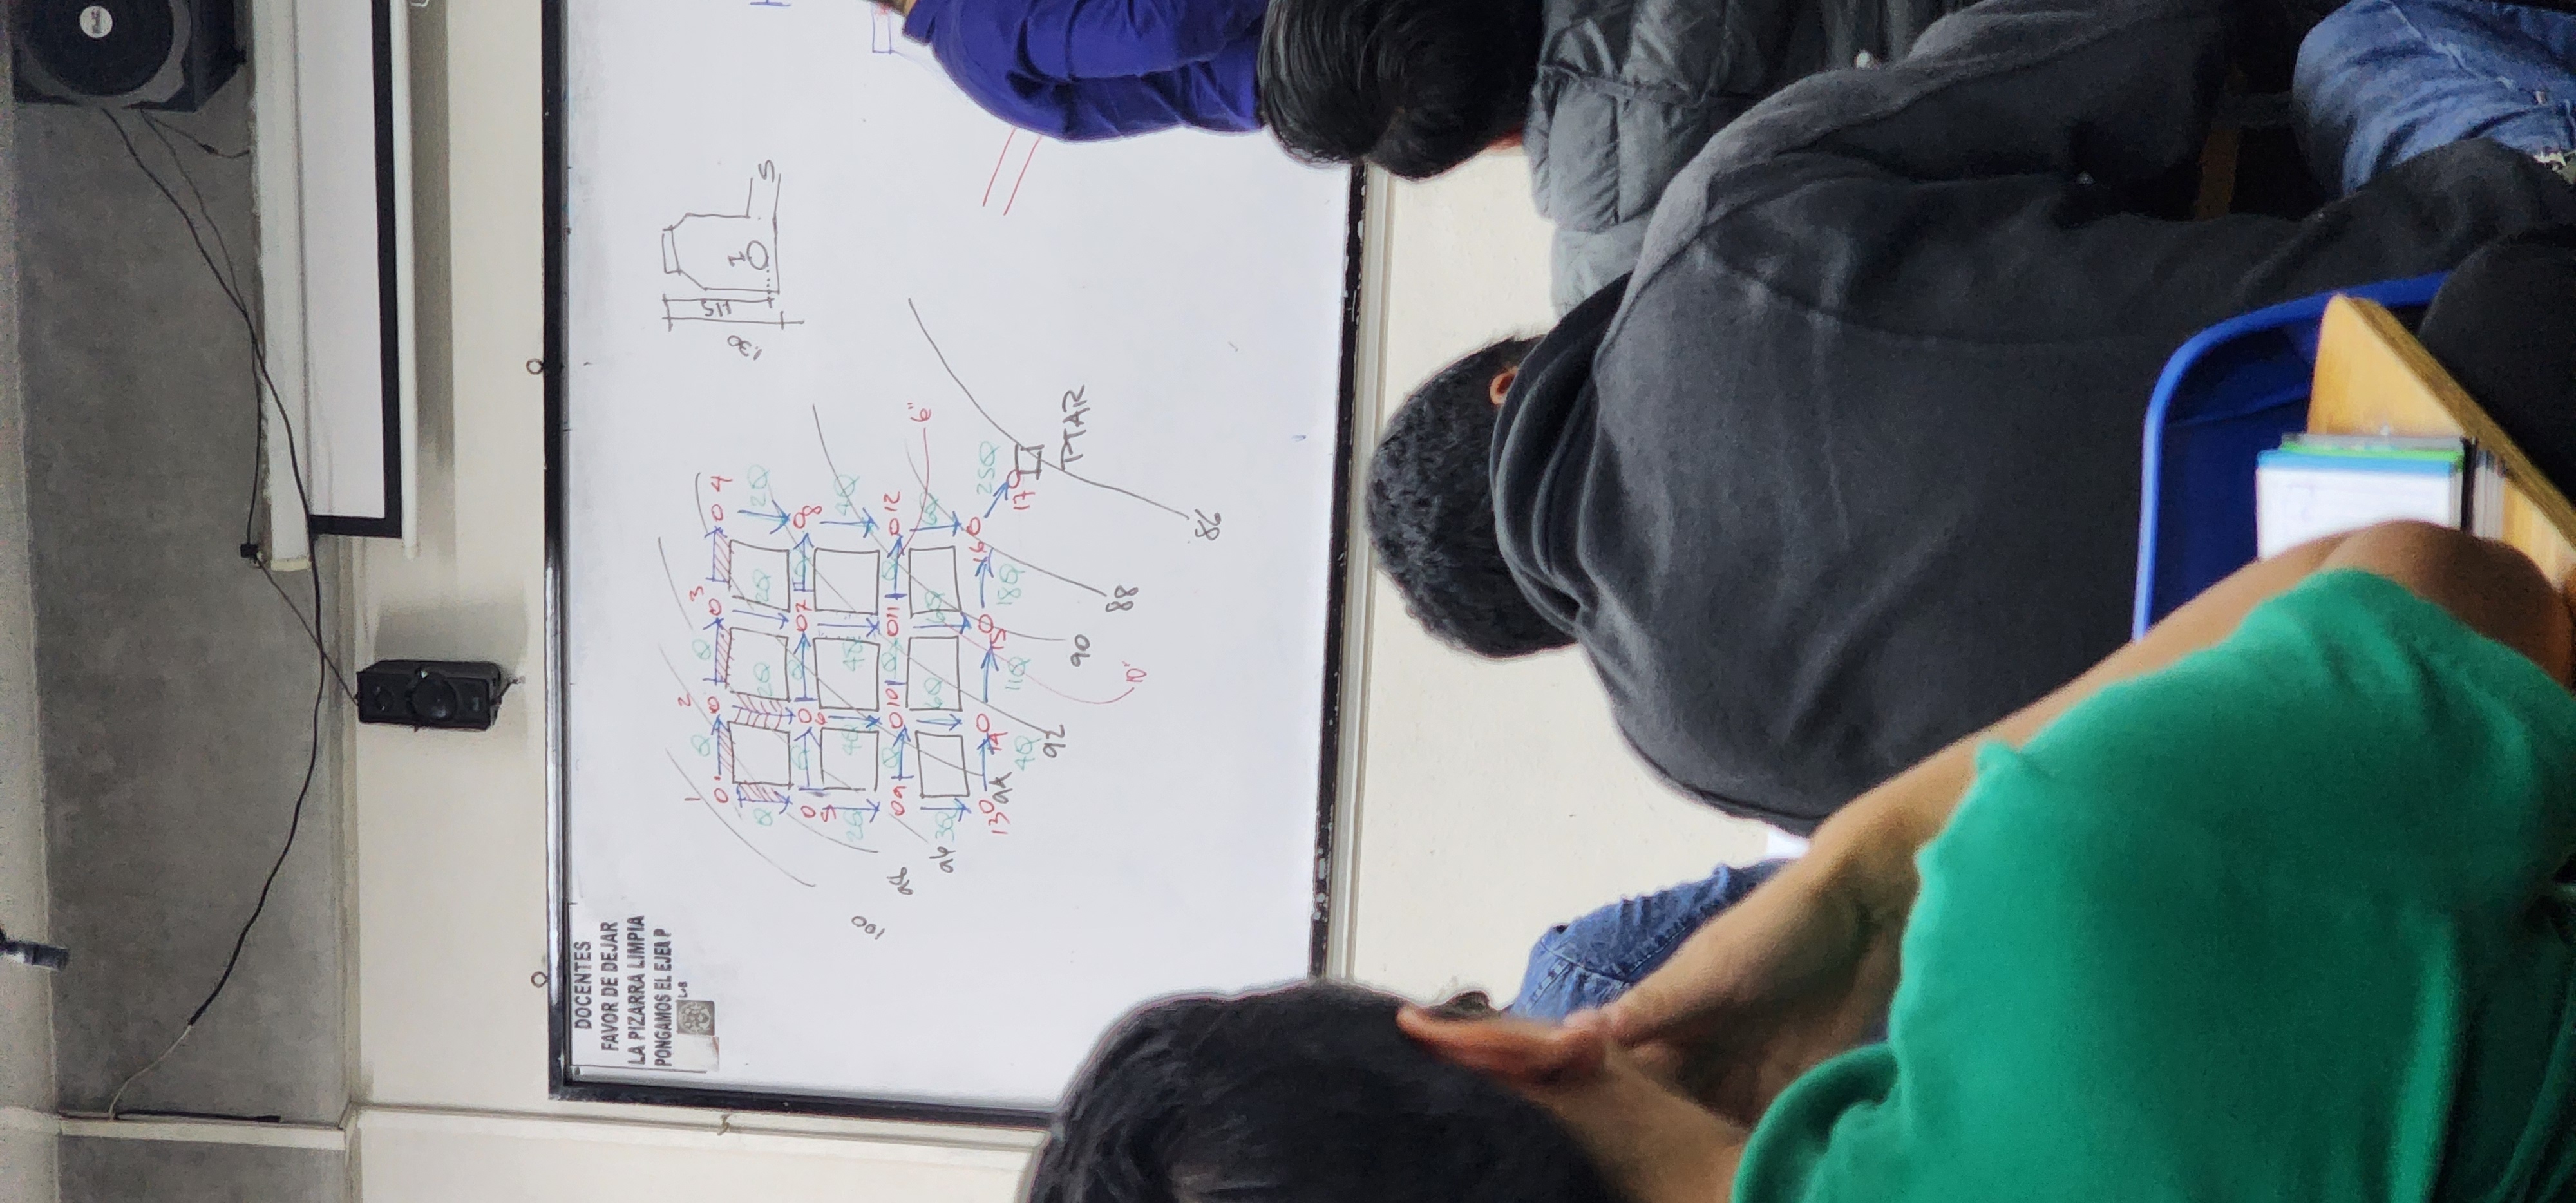 DOCENTES
FAVOR DE DEJAR
LA PIZARRA LIMPIA
PONGAMOS EL EJEM P
LOB
1 2 3 4
Q Q
Q 2Q 2Q 2Q
Q Q Q
5 6 7 8
2Q 4Q 4Q 4Q
Q Q Q
9 10 11 12
6"
3Q 6Q 6Q 6Q
13 14 15 16
4Q 11Q 18Q 25Q
17
PTAR
100
98
96
94
92
90
88
86
10"
1.30
1.15
I
S